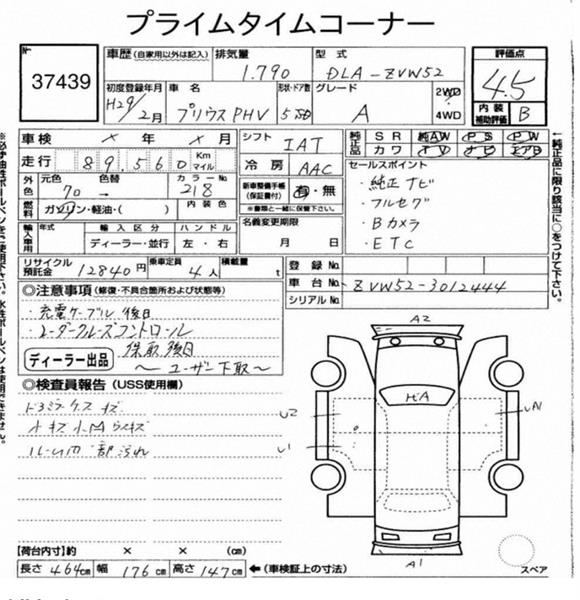 プライムタイムコーナー
No. 37439
車歴 (自家用以外は記入) 排気量 1.790 型式 DLA-ZVW52 評価点 4.5
初度登録年月 H29/2月 車名 プリウスPHV 形状・ドア数 5 グレード A 2WD 4WD 内装補助評価 B
車検 × 年 × 月 シフト IAT 純正品 SR AW PS PW
走行 89,560 Km マイル 冷房 AAC カワ TV ナビ エアB
外色 元色 70 → 色替 カラーNo. 218 新車整備手帳(保証書付) 有・無
※書類と一緒に保管下さい。
燃料 ガソリン・軽油・( ) 内装色 名義変更期限 月 日
セールスポイント
・純正ナビ
・フルセグ
・Bカメラ
・ETC
輸入車用 年式 輸入区分 ハンドル
ディーラー・並行 左・右
リサイクル預託金 12840円 乗車定員 4人 積載量 t
登録No.
車台No. ZVW52-3012444
シリアルNo.
◎注意事項 (修復・不具合箇所および状態等)
・充電ケーブル 後日
・レーダークルーズコントロール
保取後日
ディーラー出品 〜ユーザー下取〜
◎検査員報告 (USS使用欄)
ドアミラーケス キズ
小キズ 小凹 ウスキズ
内 部 汚れ
A2
U2
U1
A1
スペア
【荷台内寸】約 × × (cm)
長さ 464cm 幅 176cm 高さ 147cm ←(車検証上の寸法)
←純正品に限り該当に○をつけて下さい。